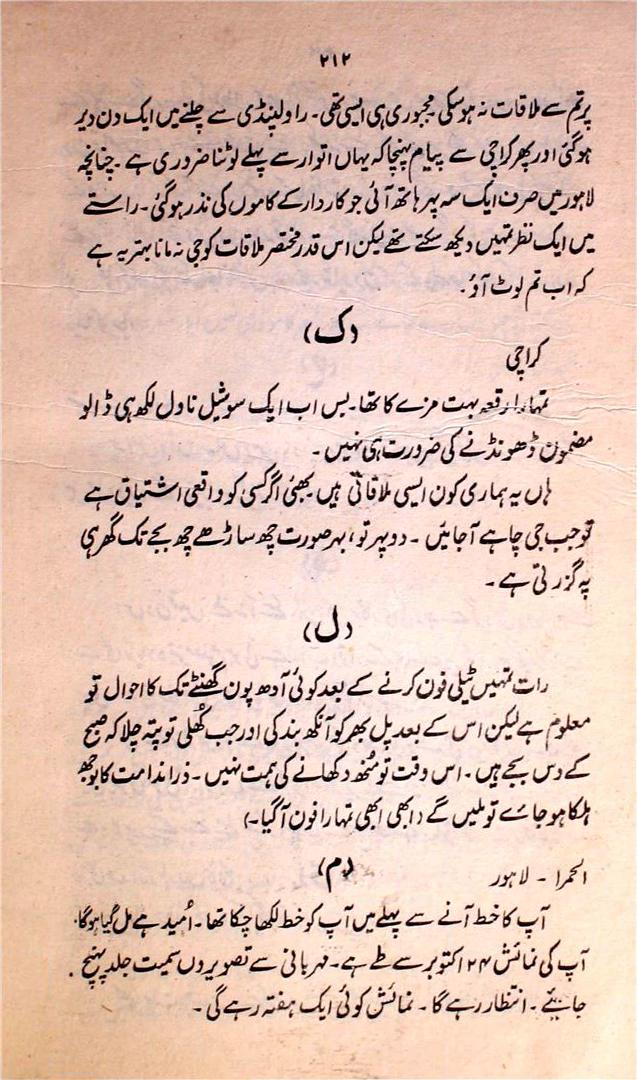 ۲۱۲
پر تم سے ملاقات نہ ہوسکی مجبوری ہی ایسی تھی۔ راولپنڈی سے چلنے میں ایک دن دیر
ہوگئی اور پھر کراچی سے پیام پہنچا کہ یہاں اتوار سے پہلے لوٹنا ضروری ہے۔ چنانچہ
لاہور میں صرف ایک سہ پہر ہاتھ آئی جو کاردار کے کاموں کی نذر ہوگئی۔ راستے
میں ایک نظر تمہیں دیکھ سکتے تھے لیکن اس قدر مختصر ملاقات کو جی نہ مانا بہتر یہ ہے
کہ اب تم لوٹ آؤ۔
(ک)
کراچی
تمہارا رقعہ بہت مزے کا تھا۔ بس اب ایک سوشیل ناول لکھ ہی ڈالو
مضمون ڈھونڈنے کی ضرورت ہی نہیں۔
ہاں یہ ہماری کون ایسی ملاقاتی ہیں بھئی اگر کسی کو واقعی اشتیاق ہے
تو جب جی چاہے آجائیں۔ دوپہر تو، بہر صورت چھ ساڑھے چھ بجے تک گھر ہی
پہ گزرتی ہے۔
(ل)
رات تمہیں ٹیلی فون کرنے کے بعد کوئی آدھ پون گھنٹے تک کا احوال تو
معلوم ہے لیکن اس کے بعد پل بھر کو آنکھ بند کی اور جب کُھلی تو پتہ چلا کہ صبح
کے دس بجے ہیں۔ اس وقت تو منُھ دکھانے کی ہمت نہیں۔ ذرا ندامت کا بوجھ
ہلکا ہو جائے تو ملیں گے (ابھی ابھی تمہارا فون آگیا۔)
(م)
الحمرا - لاہور
آپ کا خط آنے سے پہلے میں آپ کو خط لکھا چکا تھا۔ اُمید ہے مل گیا ہوگا۔
آپ کی نمائش ۲۴ اکتوبر سے طے ہے۔ مہربانی سے تصویروں سمیت جلد پہنچ
جایئے۔ انتظار رہے گا۔ نمائش کوئی ایک ہفتہ رہے گی۔